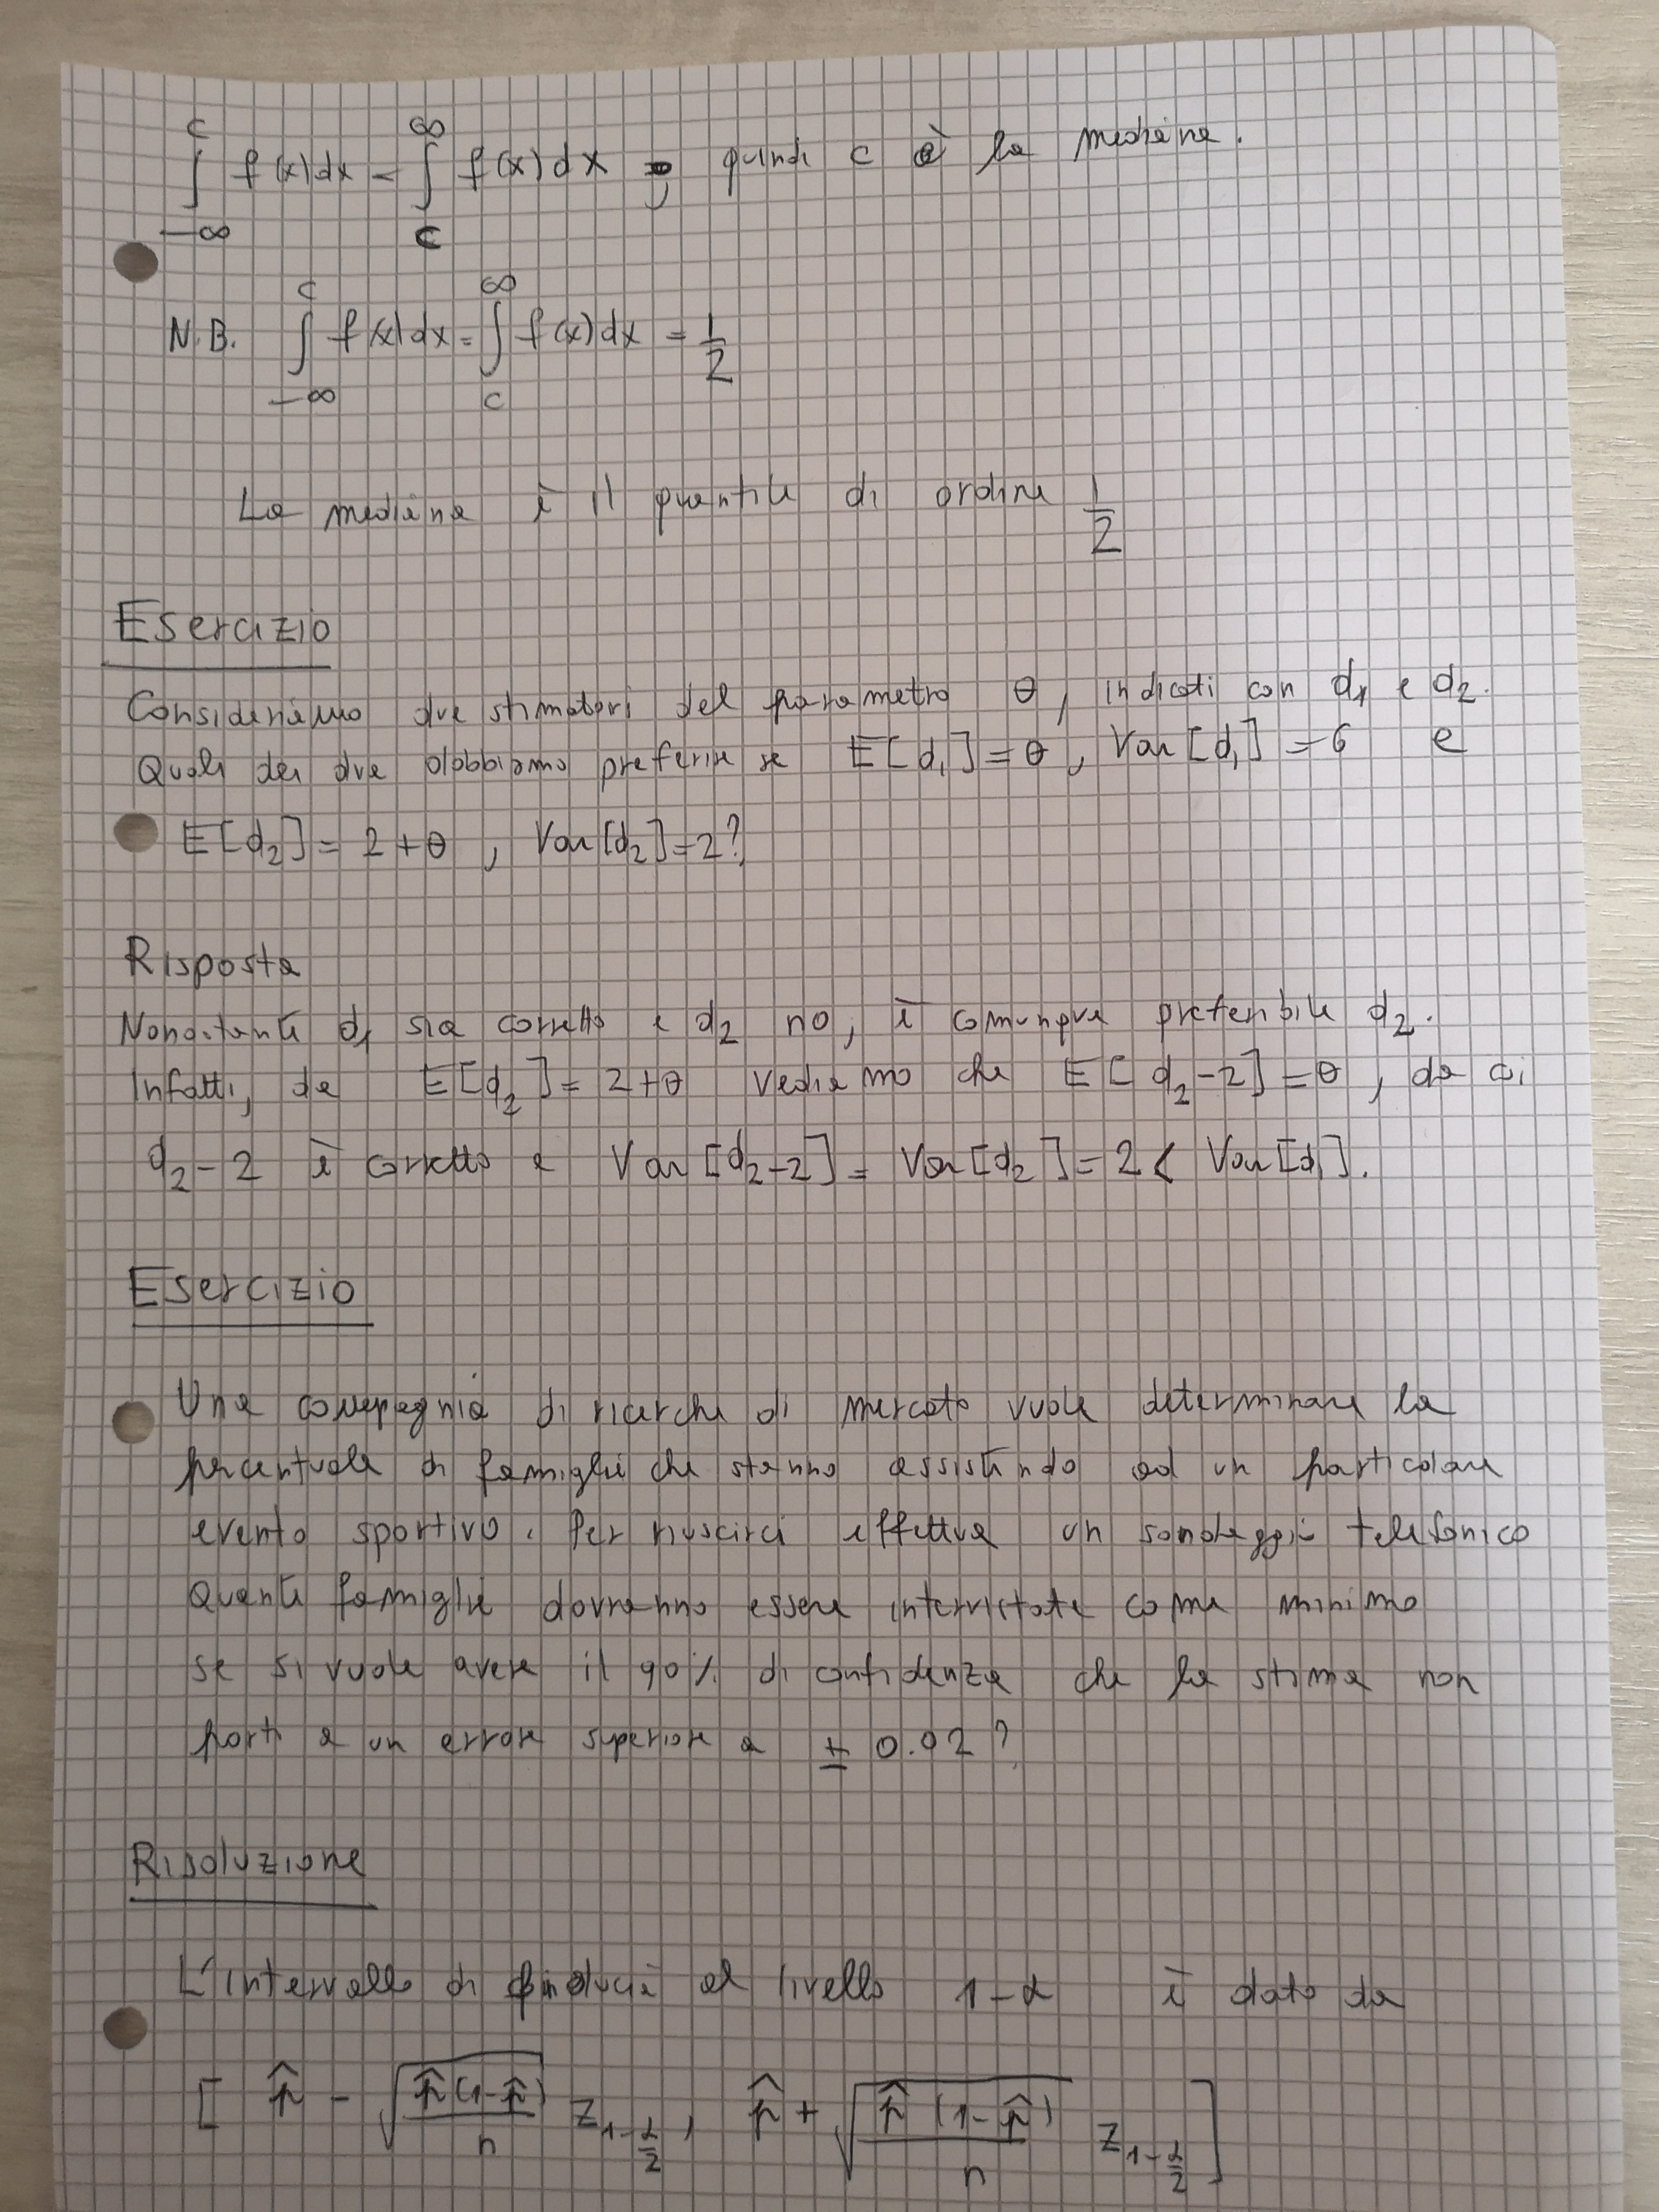 ∫_{-∞}^{c} f(x)dx = ∫_{c}^{∞} f(x)dx , quindi c è la mediana.
N.B. ∫_{-∞}^{c} f(x)dx = ∫_{c}^{∞} f(x)dx = 1/2
La mediana è il quantile di ordine 1/2
Esercizio
Consideriamo due stimatori del parametro θ, indicati con d₁ e d₂.
Quale dei due dobbiamo preferire se E[d₁]=θ, Var[d₁]=6 e
E[d₂]= 2+θ, Var[d₂]=2?
Risposta
Nonostante d₁ sia corretto e d₂ no, è comunque preferibile d₂.
Infatti, da E[d₂]= 2+θ vediamo che E[d₂-2]=θ, da cui
d₂-2 è corretto e Var[d₂-2]= Var[d₂]=2 < Var[d₁].
Esercizio
Una compagnia di ricerche di mercato vuole determinare la
percentuale di famiglie che stanno assistendo ad un particolare
evento sportivo. Per riuscirci effettua un sondaggio telefonico
Quante famiglie dovranno essere intervistate come minimo
se si vuole avere il 90% di confidenza che la stima non
porti a un errore superiore a ± 0.02?
Risoluzione
L'intervallo di fiducia al livello 1-α è dato da
[ p̂ - √(p̂(1-p̂)/n) z_{1-α/2}, p̂ + √(p̂(1-p̂)/n) z_{1-α/2} ]